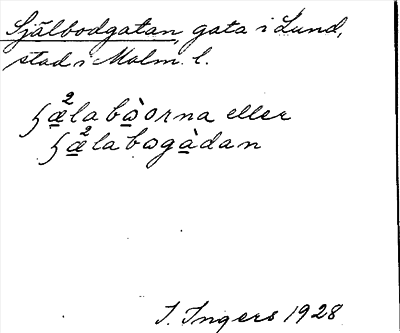 Själbodgatan, gata i Lund,
stad i Malm. l.
ʃæ̲²labà̲orna eller
ʃæ̲²labogàdan
I. Ingers 1928